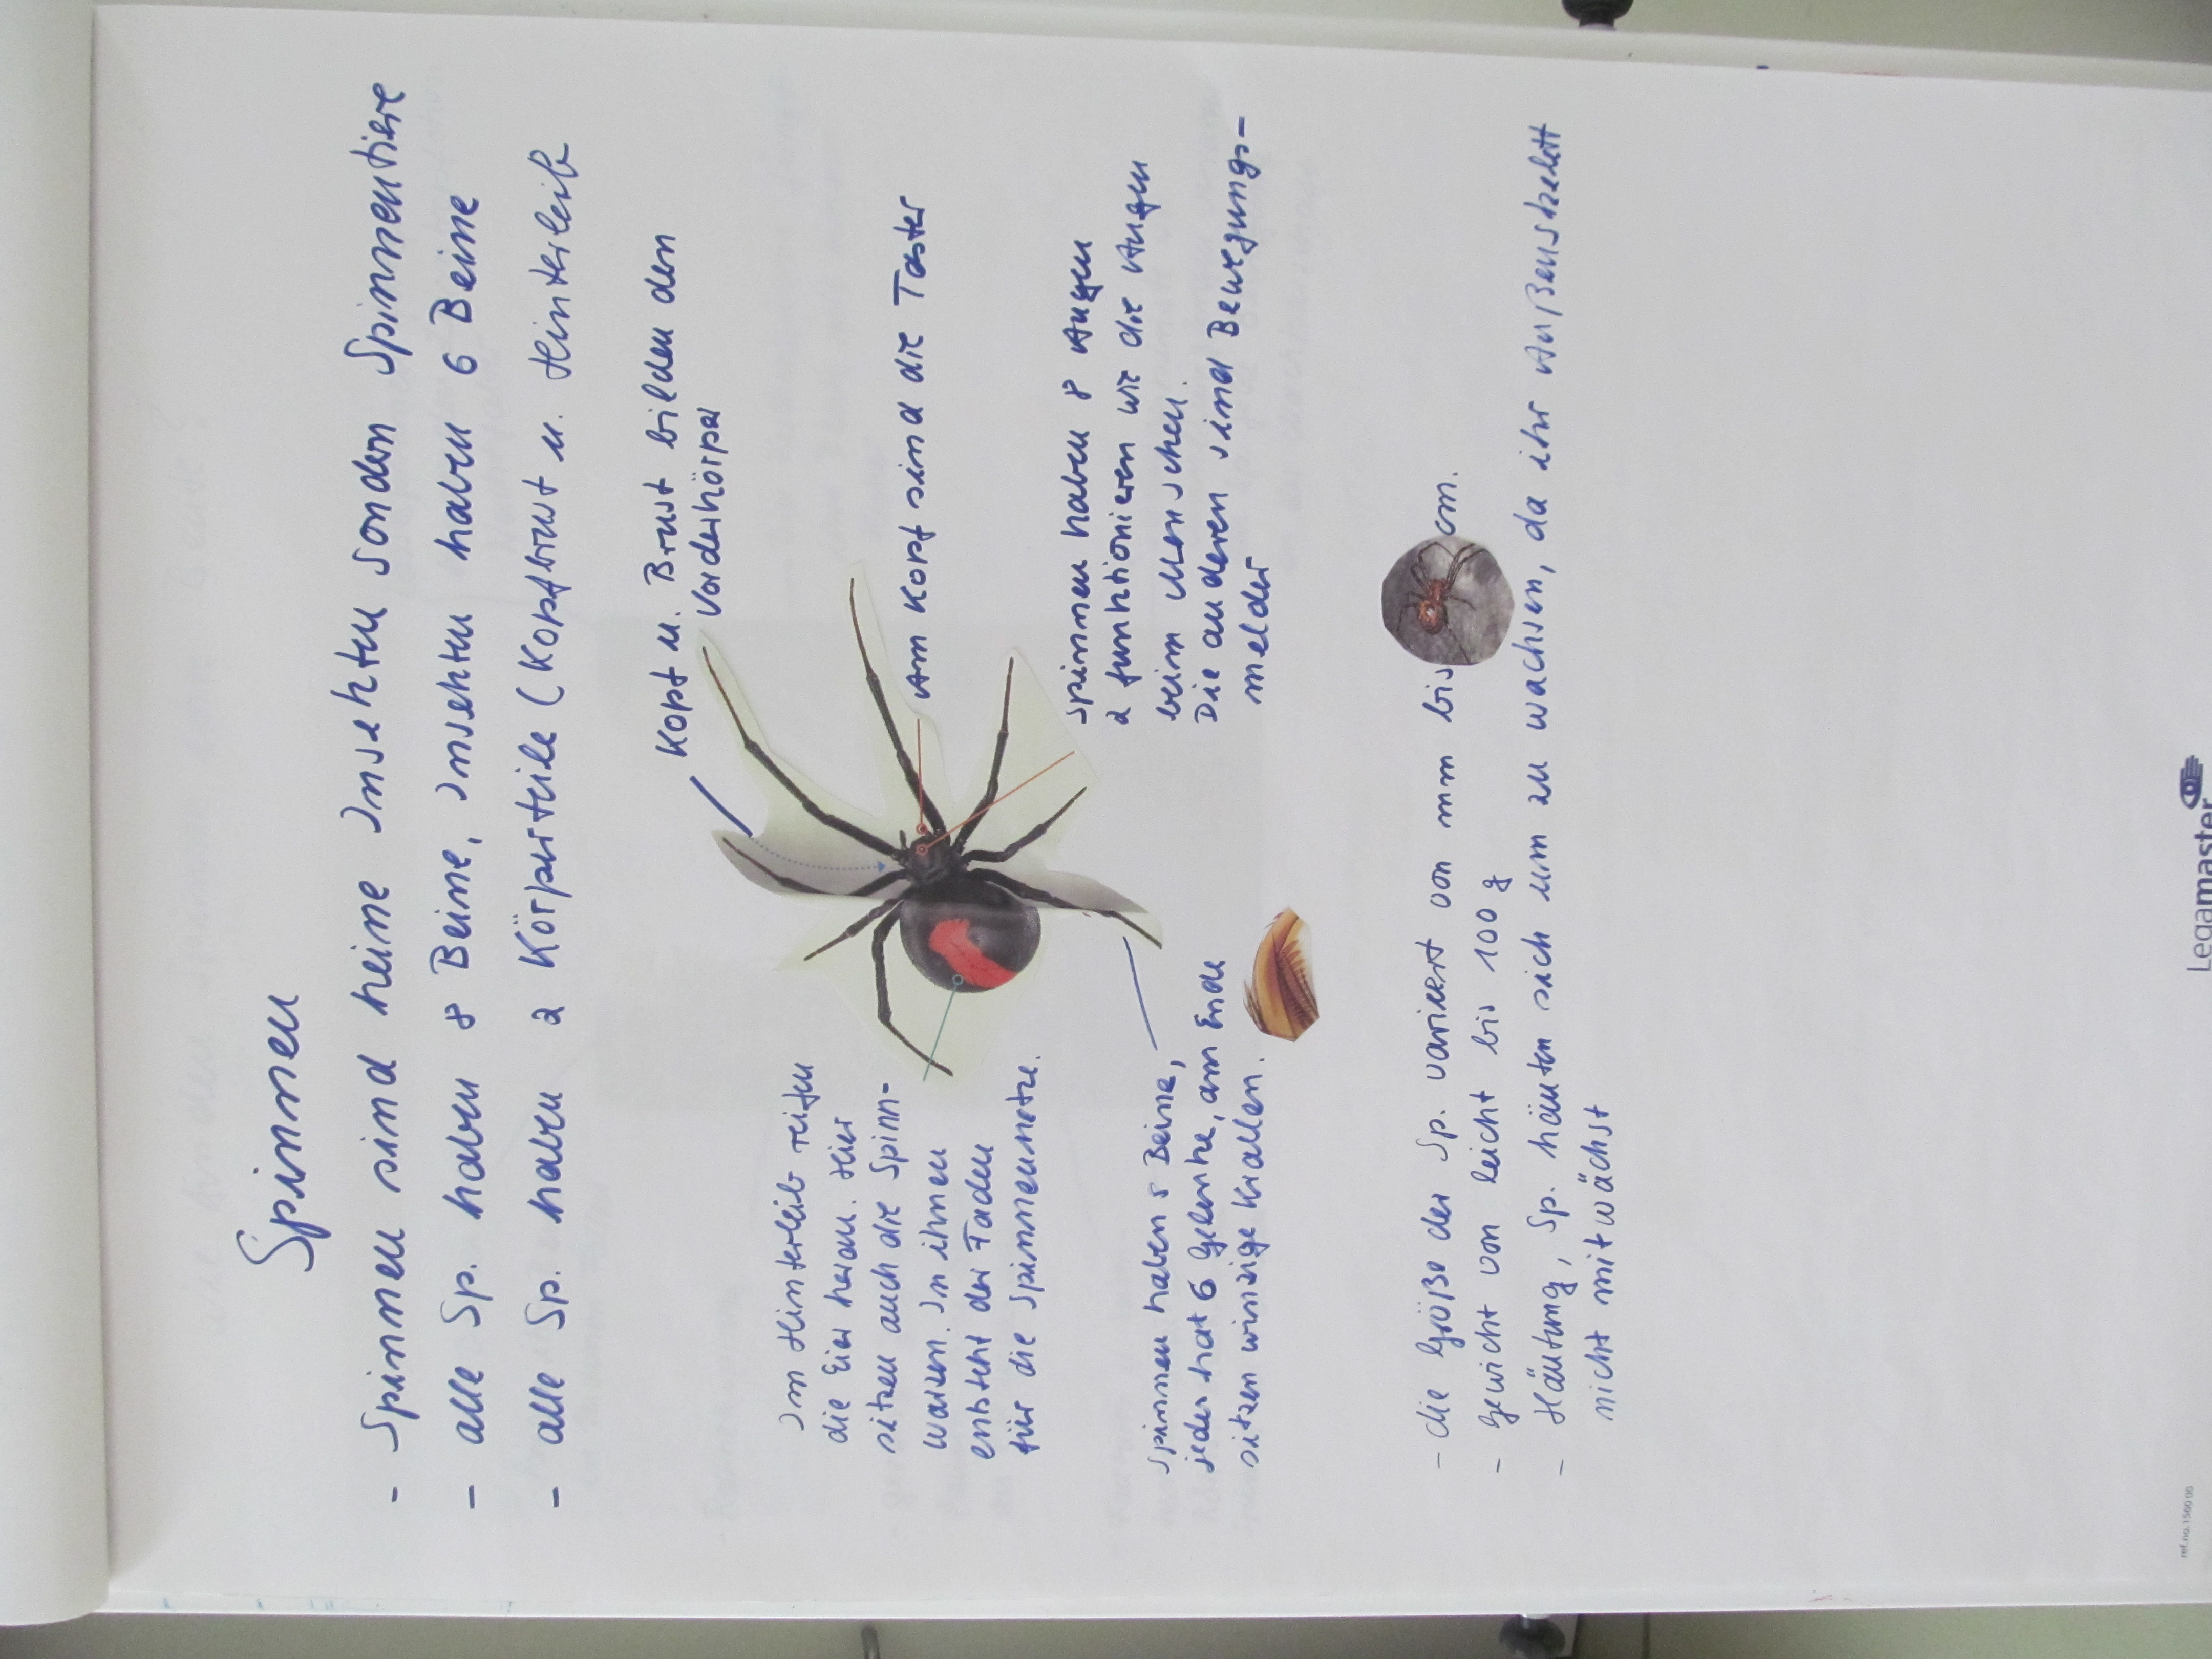 Spinnen
- Spinnen sind keine Insekten sondern Spinnentiere
- alle Sp. haben 8 Beine, Insekten haben 6 Beine
- alle Sp. haben 2 Körperteile (Kopfbrust u. Hinterleib
Kopf u. Brust bilden den
Vorderkörper
Am Kopf sind die Taster
Spinnen haben 8 Augen
2 funktionieren wie die Augen
beim Menschen.
Die anderen sind Bewegungs-
melder
Im Hinterleib reifen
die Eier heran. Hier
sitzen auch die Spinn-
warzen. In ihnen
entsteht der Faden
für die Spinnennetze.
Spinnen haben 8 Beine,
jedes hat 6 Gelenke, am Ende
sitzen winzige Krallen.
- die Größe der Sp. variiert von mm bis cm.
- Gewicht von leicht bis 100 g
- Häutung, Sp. häuten sich um zu wachsen, da ihr Außenskelett
nicht mitwächst
Legamaster
ref.no.1560 00